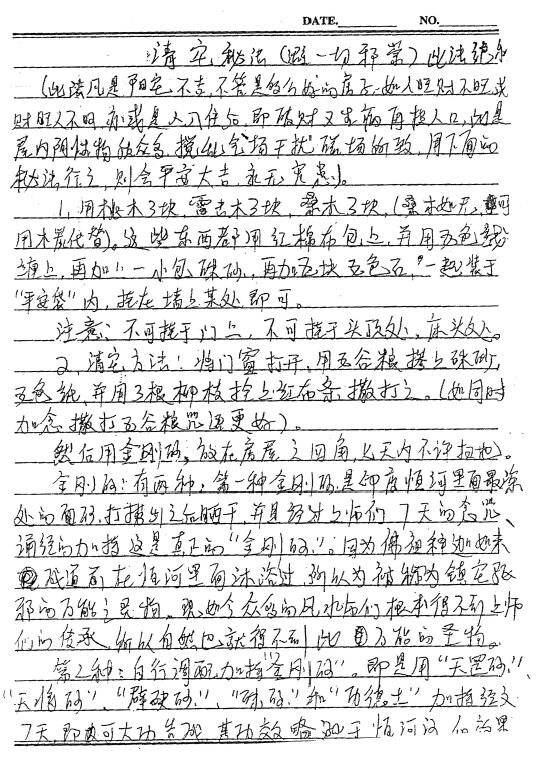 DATE. NO.
清宅秘法（避一切邪祟）此法绝
（此法凡是阳宅不吉，不管是多么好的房子，如人旺财不旺或
财旺人不旺，亦或是入住后，即破财又生病再损人口，此是
屋内阴性物体众多，搅乱气场干扰磁场所致，用下面的
秘法行之，则会平安大吉，永无灾患）。
1，用桃木3块，雷击木3块，桑木3块，（桑木如无，可
用木炭代替）。这些东西都用红棉布包上，并用五色线
缠上，再加上一小包硃砂，再加五块五色石，一起装于
“平安袋”内，挂在墙上某处即可。
注意：不可挂于门上，不可挂于头顶处，床头处。
2，清宅方法：将门窗打开，用五谷粮拌上硃砂，
五色纸，并用3根柳枝拴上红布条，撒打之。（如同时
加念撒打五谷粮咒语更好）。
然后用金刚砂，放在房屋之四角，七天内不许扫地）。
金刚砂：有两种：第一种金刚砂是印度恒河里面最深
处的面砂，打捞出之后晒干，并且经过上师们7天的念咒、
诵经的加持，这是真正的“金刚砂”。因为佛祖释迦如来
成道前在恒河里面沐浴过，所以为被称为镇宅驱
邪的万能之灵物。现如今众多的风水师们根本得不到上师
们的传承，所以自然也就得不到此万能的圣物。
第二种：自行调配加持“金刚砂”。即是用“天罡砂”、
“天将砂”、“辟砂”、“硃砂”和“功德土”加持经文
7天，即可大功告成，其功效略逊于恒河沙的效果